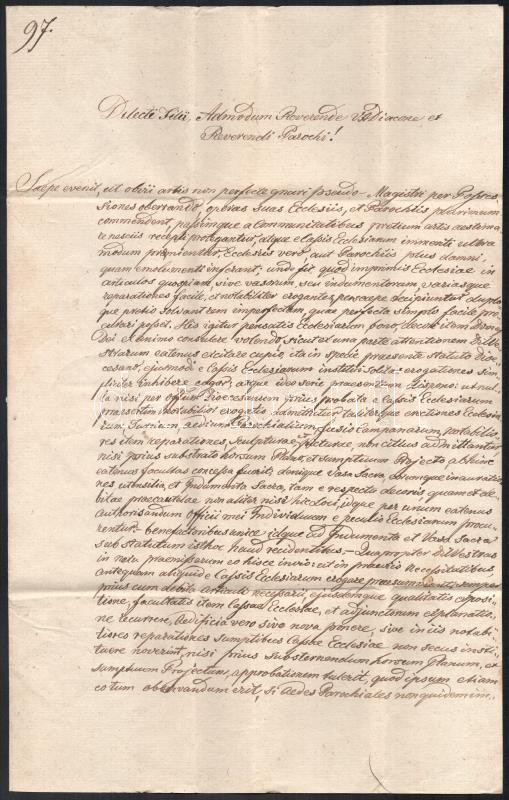 97.
Dilecti Filii, Admodum Reverende VADiacone et
Reverendi Parochi!
Saepe evenit, ut obvii artis non perfecte gnari pseudo-Magistri per Posses
siones oberrando, operas suas Ecclesiis, et Parochiis plurimum
commendent, passimque a Communitatibus pretium artis aestima
re nesciis recepti
modum Ecclesiis vero aut Parochiis plus damni,
quam emolumenti inferant; unde fit quod imprimis Ecclesiae in
articulos quospiam, sive vasorum, seu indumentorum, variasque
reparationes facile, et notabiliter erogantes, persaepe decipiuntur, duplo
que pretio solvant rem imperfectam, quae perfecta simplo facile pro,,
curari posset. His igitur pensatis Ecclesiarum bono, decori item Domus
Dei ex animo consulere volendo, sicut ex una parte attentionem DilVe
strarum eatenus excitare cupio, ita in specie praesente statuto Dioe
cesano, ejusmodi e Cassis Ecclesiarum institui solitas erogationes sim
pliciter inhibere cogor, atque ideo serie praesentium dispono: ut nul,,
la nisi per officium Dioecesanum prius probata e Cassis Ecclesiarum
notabilior erogatio admittatur, taliterque erectiones Ecclesia
rum, Turrium, aedium Parochialium, fusio Campanarum, notabilio,,
res item reparationes, Sculpturae et picturae, non citius admittantur,
nisi prius substrato horsum Plano, et Sumptuum Projecto, abhinc
eatenus facultas concessa fuerit; denique Vasa Sacra, eorumque inauratio
nes utensilia, et Indumenta Sacra, tam e respectu decoris quam et de,,
bitae praecautelae non aliter nisi hicloci, idque per unum eatenus
authorisandum officii mei Individuum e peculio Ecclesiarum procu,,
rentur - benefactoribus unice idque ad Indumenta et Vasa Sacra
sub statutum isthoc haud recidentibus. - Quapropter DilVestras
in nota praemissarum eo hisce inviō: ut in praeviis Necessitatibus
antequam aliquid e Cassis Ecclesiarum erogare praesumant, semper
prius cum debita articuli necessarii, ejusdemque qualitatis exposi,,
tione, facultatis item Cassae Ecclesiae, et adjunctorum explanatio,,
ne recurrere, Aedificia vero sive nova ponere, sive in iis notabi,,
liores reparationes sumptibus Cassae Ecclesiae non secus insti,,
tuere noverint, nisi prius substernendum horsum Planum, et
sumptuum Projectum, approbationem tulerit, quod ipsum etiam
eotum observandum erit, si Aedes Parochiales non quidem im,,